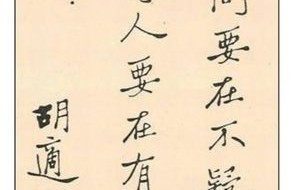 問要在不疑
人要在有
胡適